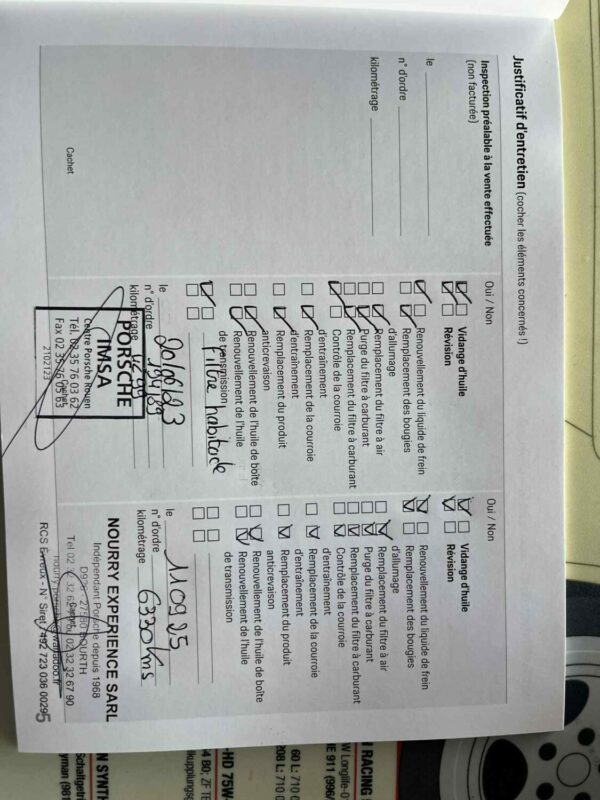 Justificatif d'entretien (cocher les éléments concernés !)
Inspection préalable à la vente effectuée
(non facturée)
le
n° d'ordre
kilométrage
Cachet
Oui / Non
Vidange d'huile
Révision
Renouvellement du liquide de frein
Remplacement des bougies
d'allumage
Remplacement du filtre à air
Purge du filtre à carburant
Remplacement du filtre à carburant
Contrôle de la courroie
d'entraînement
Remplacement de la courroie
d'entraînement
Remplacement du produit
anticrevaison
Renouvellement de l'huile de boîte
Renouvellement de l'huile
de transmission
Filtre habitacle
le 20/6/23
n° d'ordre
kilométrage
PORSCHE
IMSA
Centre Porsche Rouen
Tél. 02 35 76 03 62
Fax 02 35
Cachet
2102123
Oui / Non
Vidange d'huile
Révision
Renouvellement du liquide de frein
Remplacement des bougies
d'allumage
Remplacement du filtre à air
Purge du filtre à carburant
Remplacement du filtre à carburant
Contrôle de la courroie
d'entraînement
Remplacement de la courroie
d'entraînement
Remplacement du produit
anticrevaison
Renouvellement de l'huile de boîte
Renouvellement de l'huile
de transmission
le 110925
n° d'ordre
kilométrage 6330kms
NOURRY EXPERIENCE SARL
Indépendant Porsche depuis 1968
BOURTH
02 32 32 67 90
RCS Evreux - N° Siret 492 723 036 00295
RACING
W Longlife-0
E 911 (996/
60 L: 710 0
208 L: 710 0
-HD 75W-
4 B0; ZF TE
kupplungsg
N SYNTH
Schaltgetri
yman (981